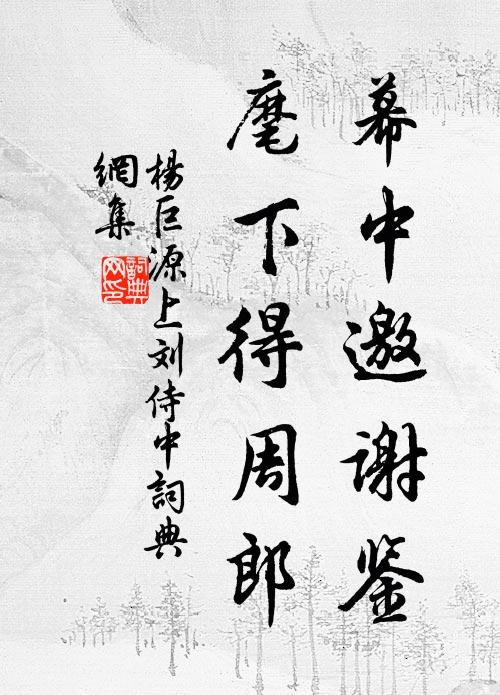 幕中邀谢鉴
麾下得周郎
杨巨源上刘侍中詞典
網集
詞典网印